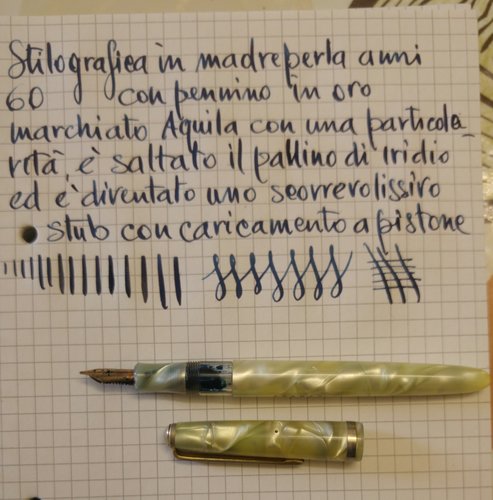 Stilografica in madreperla anni
60 con pennino in oro
marchiato Aquila con una particola_
rità, è saltato il pallino di iridio
ed è diventato uno scorrevolissiro
stub con caricamento a pistone